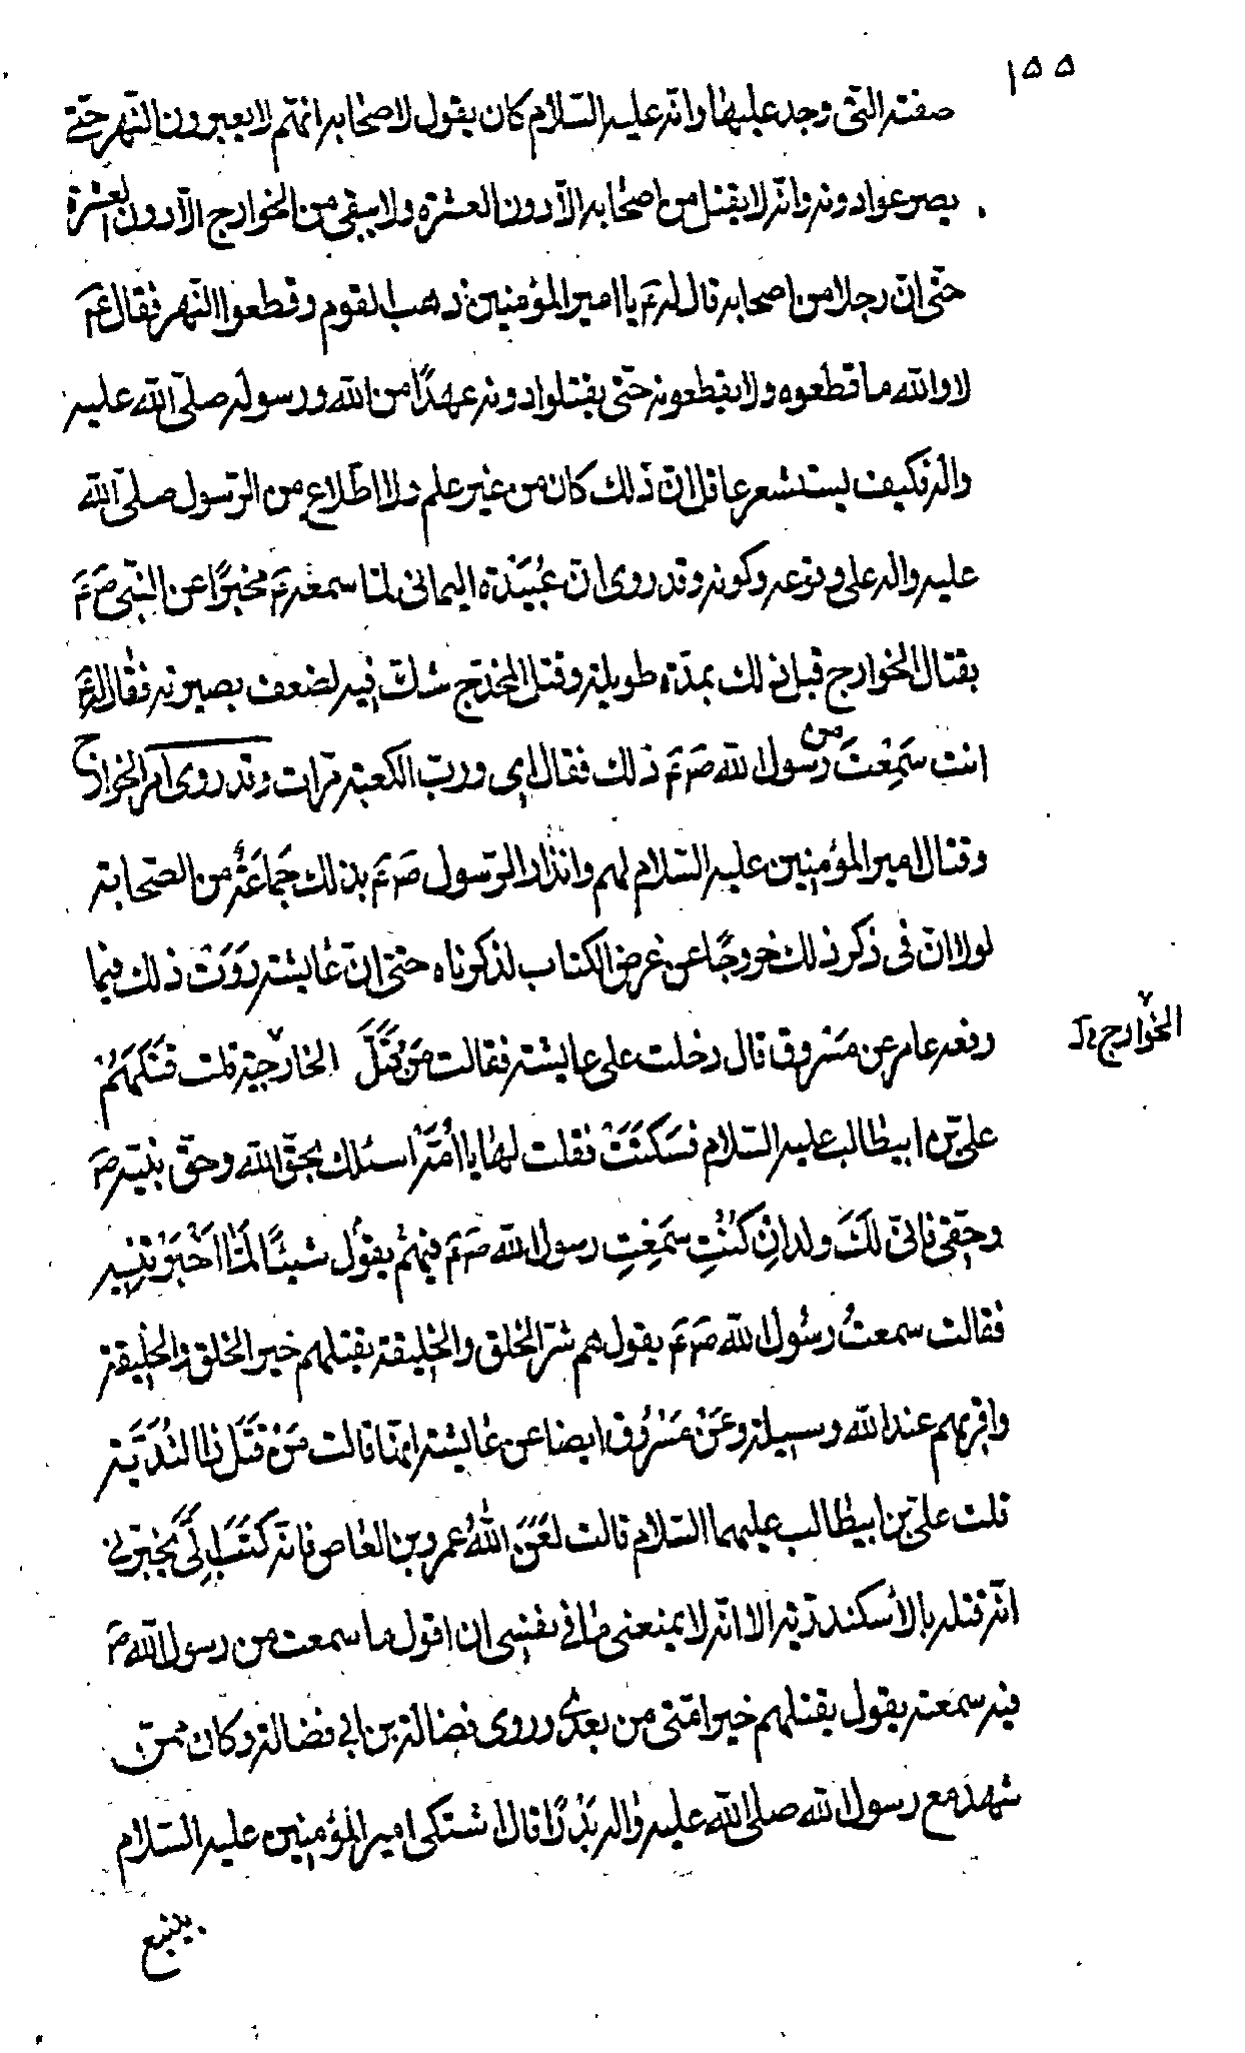 ١٥٥
صفته التی وجد علیها وانه علیه السّلام کان یقول لاصحابه انهم لا یعبرون النّهر حتی
یصرعوا دونه وانّه لا یقتل من اصحابه الّا دون العشرة ولا یبقی من الخوارج الّا دون العشرة
حتی انّ رجلا من اصحابه قال له ع یا امیر المؤمنین ذهب القوم وقطعوا النّهر فقال ع
لا والله ما قطعوه ولا یقطعونه حتّی یقتلوا دونه عهدًا من الله ورسوله صلّی الله علیه
واله فکیف یستشعر عاقل انّ ذلک کان من غیر علم ولا اطّلاعٍ من الرّسول صلی الله
علیه واله علی وقوعه وکونه وقد روی انّ عُبَیْدَة الیمانی لمّا سمعه ع مخبرًا عن النّبی ص ع
بقتال الخوارج قبل ذلک بمدّة طویلة وقتل المخدج شکّ فیه لضعف بصیرته فقال له ع
انت سَمِعْتَ من رسول الله ص ع ذلک فقال ای وربّ الکعبة مرّات وقد روی امر الخوارج
وقتال امیر المؤمنین علیه السّلام لهم وانذار الرّسول ص ع بذلک جَماعَةٌ من الصّحابة
لولا انّ فی ذکر ذلک خروجًا عن غرض الکتاب لذکرناه حتی انّ عایشة رَوَتْ ذلک فیما
رفعه عامر عن مَسْروق قال دخلت علی عایشة فقالت مَنْ قَتَلَ الخارجیّة قلت قَتَلَهُمْ
الخوارج
علیّ بن ابیطالب علیه السّلام فسَکَتَتْ فقلت لها یا اُمَّهْ اسئلک بحقّ الله وحقّ نبیّه ص
وحقّی فانّی لَکِ ولد اِنْ کُنْتِ سَمِعْتِ رسول الله ص ع فیهِمْ یقول شیئًا لمّا اَخْبَرْتِنیه
فقالت سمعتُ رسُول الله ص ع یقول هم شرّ الخلق والخلیقة یقتلهم خیر الخلق والخلیقة
واقربهم عند الله وسیلة وعَنْ مَسْرُوق ایضا عن عایشة انّها قالت مَنْ قَتَلَ ذا الثُدَیَّة
قلت علیّ بن ابیطالب علیهما السّلام قالت لَعَنَ اللهُ عمرو بن العاص فانّه کَتَبَ اِلَیَّ یُخْبِرُنی
انّه قتله بالأسکندریّة الا انّه لا یمنعنی ما فی نفسی ان اقول ما سمعت من رسول الله ص
فیه سمعته یقول یقتلهم خیر امّتی من بعدی وروی فضالة بن ابی فضالة وکان ممّن
شهد مع رسول الله صلی الله علیه واله بَدْرًا قال اشتکی امیر المؤمنین علیه السّلام
بینبع